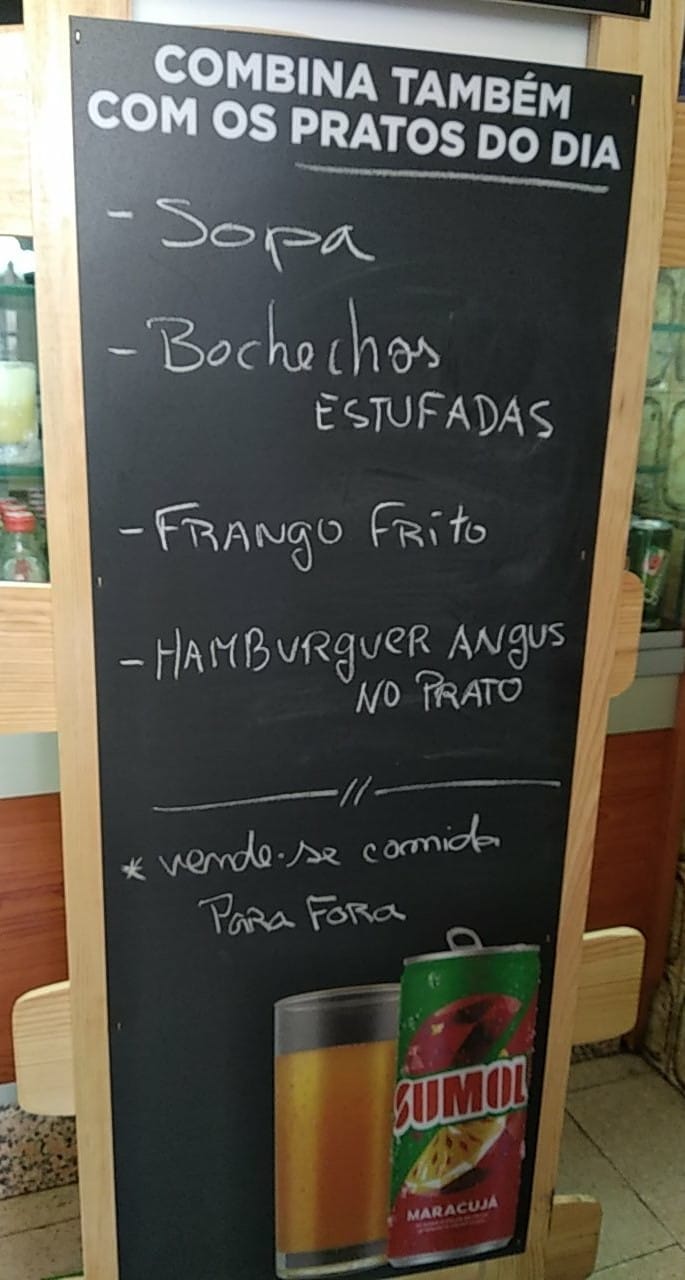 COMBINA TAMBÉM
COM OS PRATOS DO DIA
- Sopa
- Bochechas
ESTUFADAS
- FRANGO FRito
- HAMBURguER ANgUS
NO PRATO
//
* vende-se comida
PARA FORA
SUMOL
MARACUJÁ